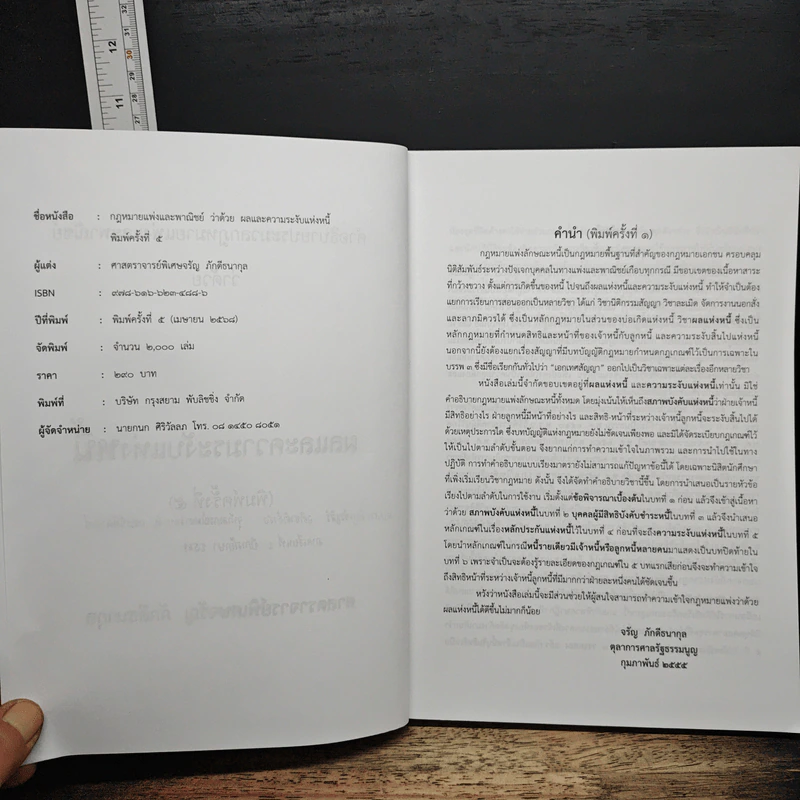 ชื่อหนังสือ : กฎหมายแพ่งและพาณิชย์ ว่าด้วย ผลและความระงับแห่งหนี้
พิมพ์ครั้งที่ ๕
ผู้แต่ง : ศาสตราจารย์พิเศษจรัญ ภักดีธนากุล
ISBN : ๙๗๘-๖๑๖-๖๒๓-๔๘๘-๖
ปีที่พิมพ์ : พิมพ์ครั้งที่ ๕ (เมษายน ๒๕๖๘)
จัดพิมพ์ : จำนวน ๒,๐๐๐ เล่ม
ราคา : ๒๙๐ บาท
พิมพ์ที่ : บริษัท กรุงสยาม พับลิชชิ่ง จำกัด
ผู้จัดจำหน่าย : นายกนก ศิริวัลลภ โทร. ๐๘ ๑๔๕๐ ๘๐๕๑
คำนำ (พิมพ์ครั้งที่ ๑)
กฎหมายแพ่งลักษณะหนี้เป็นกฎหมายพื้นฐานที่สำคัญของกฎหมายเอกชน ครอบคลุม
นิติสัมพันธ์ระหว่างปัจเจกบุคคลในทางแพ่งและพาณิชย์เกือบทุกกรณี มีขอบเขตของเนื้อหาสาระ
ที่กว้างขวาง ตั้งแต่การเกิดขึ้นของหนี้ ไปจนถึงผลแห่งหนี้และความระงับแห่งหนี้ ทำให้จำเป็นต้อง
แยกการเรียนการสอนออกเป็นหลายวิชา ได้แก่ วิชานิติกรรมสัญญา วิชาละเมิด จัดการงานนอกสั่ง
และลาภมิควรได้ ซึ่งเป็นหลักกฎหมายในส่วนของบ่อเกิดแห่งหนี้ วิชาผลแห่งหนี้ ซึ่งเป็น
หลักกฎหมายที่กำหนดสิทธิและหน้าที่ของเจ้าหนี้กับลูกหนี้ และความระงับสิ้นไปแห่งหนี้
นอกจากนี้ยังต้องแยกเรื่องสัญญาที่มีบทบัญญัติกฎหมายกำหนดกฎเกณฑ์ไว้เป็นการเฉพาะใน
บรรพ ๓ ซึ่งมีชื่อเรียกกันทั่วไปว่า "เอกเทศสัญญา" ออกไปเป็นวิชาเฉพาะแต่ละเรื่องอีกหลายวิชา
หนังสือเล่มนี้จำกัดขอบเขตอยู่ที่ผลแห่งหนี้ และความระงับแห่งหนี้เท่านั้น มิใช่
คำอธิบายกฎหมายแพ่งลักษณะหนี้ทั้งหมด โดยมุ่งเน้นให้เห็นถึงสภาพบังคับแห่งหนี้ว่าฝ่ายเจ้าหนี้
มีสิทธิอย่างไร ฝ่ายลูกหนี้มีหน้าที่อย่างไร และสิทธิ-หน้าที่ระหว่างเจ้าหนี้ลูกหนี้จะระงับสิ้นไปได้
ด้วยเหตุประการใด ซึ่งบทบัญญัติแห่งกฎหมายยังไม่ชัดเจนเพียงพอ และมิได้จัดระเบียบกฎเกณฑ์ไว้
ให้เป็นไปตามลำดับขั้นตอน จึงยากแก่การทำความเข้าใจในภาพรวม และการนำไปใช้ในทาง
ปฏิบัติ การทำคำอธิบายแบบเรียงมาตรายังไม่สามารถแก้ปัญหาข้อนี้ได้ โดยเฉพาะนิสิตนักศึกษา
ที่เพิ่งเริ่มเรียนวิชากฎหมาย ดังนั้น จึงได้จัดทำคำอธิบายวิชานี้ขึ้น โดยการนำเสนอเป็นรายหัวข้อ
เรียงไปตามลำดับในการใช้งาน เริ่มตั้งแต่ข้อพิจารณาเบื้องต้นในบทที่ ๑ ก่อน แล้วจึงเข้าสู่เนื้อหา
ว่าด้วย สภาพบังคับแห่งหนี้ในบทที่ ๒ บุคคลผู้มีสิทธิบังคับชำระหนี้ในบทที่ ๓ แล้วจึงนำเสนอ
หลักเกณฑ์ในเรื่องหลักประกันแห่งหนี้ไว้ในบทที่ ๔ ก่อนที่จะถึงความระงับแห่งหนี้ในบทที่ ๕
โดยนำหลักเกณฑ์ในกรณีหนี้รายเดียวมีเจ้าหนี้หรือลูกหนี้หลายคนมาแสดงเป็นบทปิดท้ายใน
บทที่ ๖ เพราะจำเป็นจะต้องรู้รายละเอียดของกฎเกณฑ์ใน ๕ บทแรกเสียก่อนจึงจะทำความเข้าใจ
ถึงสิทธิหน้าที่ระหว่างเจ้าหนี้ลูกหนี้ที่มีมากกว่าฝ่ายละหนึ่งคนได้ชัดเจนขึ้น
หวังว่าหนังสือเล่มนี้จะมีส่วนช่วยให้ผู้สนใจสามารถทำความเข้าใจกฎหมายแพ่งว่าด้วย
ผลแห่งหนี้ได้ดีขึ้นไม่มากก็น้อย
จรัญ ภักดีธนากุล
ตุลาการศาลรัฐธรรมนูญ
กุมภาพันธ์ ๒๕๕๕